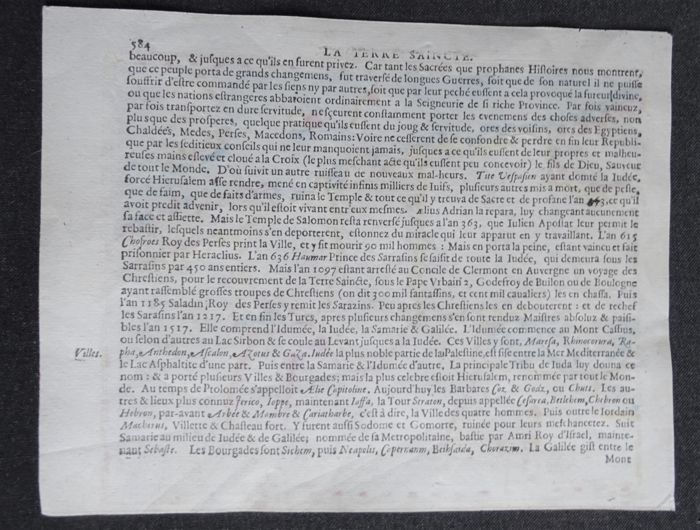 584
LA TERRE SAINCTE.
beaucoup, & juſques a ce qu'ils en furent privez. Car tant les Sacrées que prophanes Hiſtoires nous monſtrent,
que ce peuple porta de grands changemens, fut traverſé de longues Guerres, ſoit que de ſon naturel il ne puiſſe
ſouffrir d'eſtre commandé par les ſiens ny par autres, ſoit que par leur peché euſſent a cela provoqué la fureur divine,
ou que les nations eſtrangeres abbatoient ordinairement a la Seigneurie de ſi riche Province. Par fois vaincuz,
par fois tranſportez en dure ſervitude, neſçeurent conſtamment porter les evenemens des choſes adverſes, non
plus que des proſperes, quelque pratique qu'ils euſſent du joug & ſervitude, ores des voiſins, ores des Egyptiens,
Chaldées, Medes, Perſes, Macedons, Romains: Voire ne ceſſerent de ſe confondre & perdre en fin leur Republi-
que par les ſeditieux conſeils qui ne leur manquoient jamais, juſques a ce qu'ils euſſent de leur propres et malheu-
reuſes mains eſlevé et cloué a la Croix (le plus meſchant acte qu'ils euſſent peu concevoir) le fils de Dieu, Sauveur
de tout le Monde. D'où ſuivit un autre ruiſſeau de nouveaux mal-heurs. Tite Veſpaſien ayant domté la Iudée,
forcé Hieruſalem aſſe rendre, mené en captivité infinis milliers de Iuifs, pluſieurs autres mis a mort, que de peſte,
que de faim, que de faits d'armes, ruina le Temple & tout ce qu'il y trouva de Sacre et de profane l'an ce qu'il
avoit predit advenir, lors qu'il eſtoit vivant entr'eux meſmes. Ælius Adrian la repara, luy changeant aucunement
ſa face et aſſiette. Mais le Temple de Salomon reſta renverſé juſques a l'an 363, que Julien Apoſtat leur permit le
rebaſtir, leſquels neantmoins s'en deporterent, eſtonnez du miracle qui leur apparut en y travaillant. L'an 615
Choſroes Roy des Perſes print la Ville, et y fit mourir 90 mil hommes: Mais en porta la peine, eſtant vaincu et fait
priſonnier par Heraclius. L'an 636 Haumar Prince des Sarraſins ſe ſaiſit de toute la Iudée, qui demeura ſous les
Sarraſins par 450 ans entiers. Mais l'an 1097 eſtant arreſté au Concile de Clermont en Auvergne un voyage des
Chreſtiens, pour le recouvrement de la Terre Saincte, ſous le Pape Vrbain 2, Godefroy de Buïlon ou de Boulogne
ayant raſſemblé groſſes troupes de Chreſtiens (on dit 300 mil fantaſſins, et cent mil cavaliers) les en chaſſa. Puis
l'an 1185 Saladin, Roy des Perſes y remit les Sarazins. Peu apres les Chreſtiens les en debouterent: et de rechef
les Saraſins l'an 1217. Et en fin les Turcs, apres pluſieurs changemens s'en ſont renduz Maiſtres abſoluz & paiſi-
bles l'an 1517. Elle comprend l'Idumée, la Iudée, la Samarie & Galilée. L'Idumée commence au Mont Caſſius,
ou ſelon d'autres au Lac Sirbon & ſe coule au Levant juſques a la Iudée. Ces Villes y ſont, Mareſa, Rhinocorura, Ra-
Villes. pha, Anthedon, Aſcalon, Azotus & Gaza. Iudée la plus noble partie de la Paleſtine, eſt ſiſe entre la Mer Mediterranée &
le Lac Aſphaltite d'une part. Puis entre la Samarie & l'Idumée d'autre. La principale Tribu de Iuda luy douna ce
nom: & a porté pluſieurs Villes & Bourgades; mais la plus celebre eſtoit Hieruſalem, renommée par tout le Mon-
de. Au temps de Ptolomée s'appelloit Ælie Capitoline. Aujourd'huy les Barbares Coz, & Godz, ou Chutz. Les au-
tres & lieux plus connuz Jerico, Joppe, maintenant Jaffa, la Tour Straton, depuis appellée Ceſarea, Betlehem, Chebron ou
Hebron, par-avant Arbée & Mambre & Cariatharbe, c'eſt à dire, la Ville des quatre hommes. Puis outre le Iordain
Macherus, Villette & Chaſteau fort. Y furent auſſi Sodome et Gomorre, ruinée pour leurs meſchancetez. Suit
Samarie au milieu de Iudée & de Galilée; nommée de ſa Metropolitaine, baſtie par Amri Roy d'Iſrael, mainte-
nant Sebaſte. Les Bourgades ſont Sichem, puis Neapolis, Capernaum, Bethſaida, Chorazim. La Galilée giſt entre le
Mont